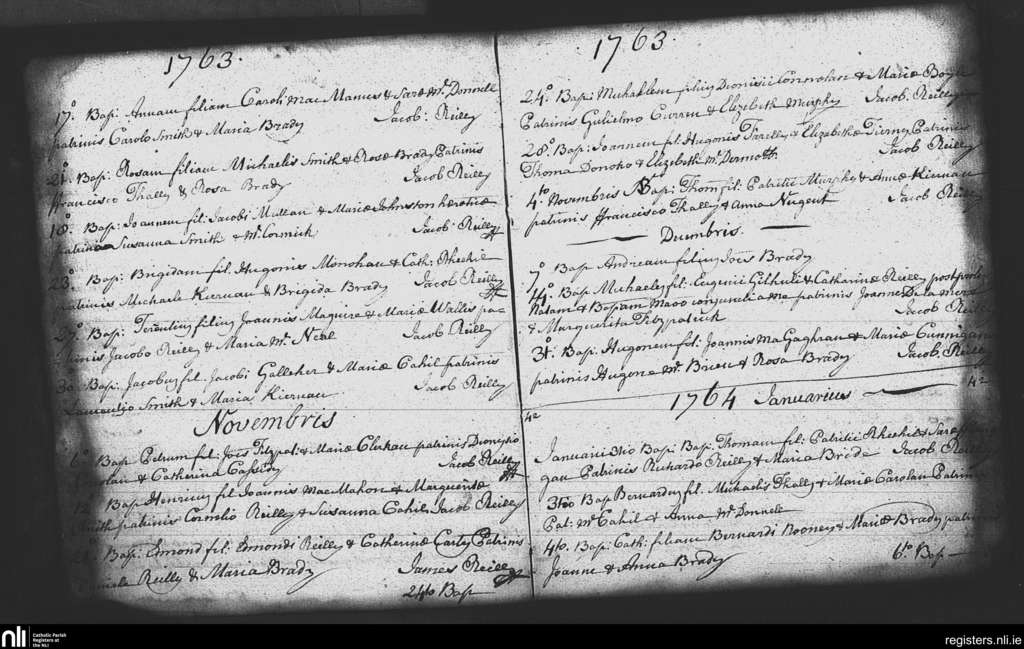 1763.
7º. Bap: Annam filiam Caroli Mac Manus & Saræ Mc Donnell
patrinis Carolo Smith & Maria Brady Jacob: Reilly
21º. Bap: Rosam filiam Michaelis Smith & Rosæ Brady Patrinis
ffrancisco Thally & Rosa Brady Jacob Reilly
18º. Bap: Joannem fil: Jacobi Mullan & Mariæ Johnston hereticæ
Susanna Smith & Mc Cormick Jacob: Reilly
23º. Bap: Brigidam fil. Hugonis Monohan & Cath: Rheehil
patrinis Michaele Kiernan & Brigida Brady Jacob Reilly
29º. Bap: Terentiu filiu Joannis Maguire & Mariæ Wallis pa=
trinis Jacobo Reilly & Maria Mc Neal Jacob Reilly
30 Bap: Jacobu fil. Jacobi Galleher & Mariæ Cahil patrinis
Laurentio Smith & Maria Kiernan Jacob Reilly
Novembris
6º Bap Petrum fil: Jois Fitzpat: & Mariæ Clerkan patrinis Dionysio
olan & Catherina Cassidy Jacob Reilly
12 Bap Henricu fil Joannis Mac Mahon & Margueritæ
Smith patrinis Cornelio Reilly & Susanna Cahil Jacob Reilly
Bap: Edmond fil: Edmondi Reilly & Catherinæ Carty Patrinis
Reilly & Maria Brady James Reilly
24to Bap
1763
24º. Bap: Michaelem filiu Dionisii Connolan & Mariæ Boyle
Patrinis Gulielmo Curren & Elizabeth Murphy Jacob: Reilly
28º. Bap: Joannem fil: Hugonis Farelly & Elizabethæ Tierny Patrinis
Thoma Donoho & Elizabeth Mc Dermott. Jacob Reilly
4to Novembris Bap: Thom fil: Patritii Murphy & Annæ Kiernan
patrinis ffrancisco Thally & Anna Nugent Jacob Reilly
Decembris.
7º Bap Andream filiu Jois Brady
14º. Bap Michaele fil: Eugenii Githuli & Catharinæ Reilly
Natam & Bapam conjunctia patrinis Joanne
& Marguerita Fitzpatrick Jacob Reilly
31º. Bap: Hugonem fil: Joannis Ma Gaghran & Mariæ Cunnigan
patrinis Hugone Mc Brien & Rosa Brady Jacob Reilly
42 42
1764 Januarius
Januarii 3tio Bap: Bap: Thomam fil: Patritii Rheehil & Saræ
gan Patrinis Richardo Reilly & Maria Bride Jacob Reilly
3tio Bap Bernardu fil. Michaelis Thally & Mariæ Carolan Patrinis
Pat: Mc Cahil & Anna Mc Donnell
4to. Bap: Cath: filiam Bernardi Rooney & Mariæ Brady patrinis
Joanne & Anna Brady 6to Bap
nli Catholic Parish
Registers at
the NLI
registers.nli.ie